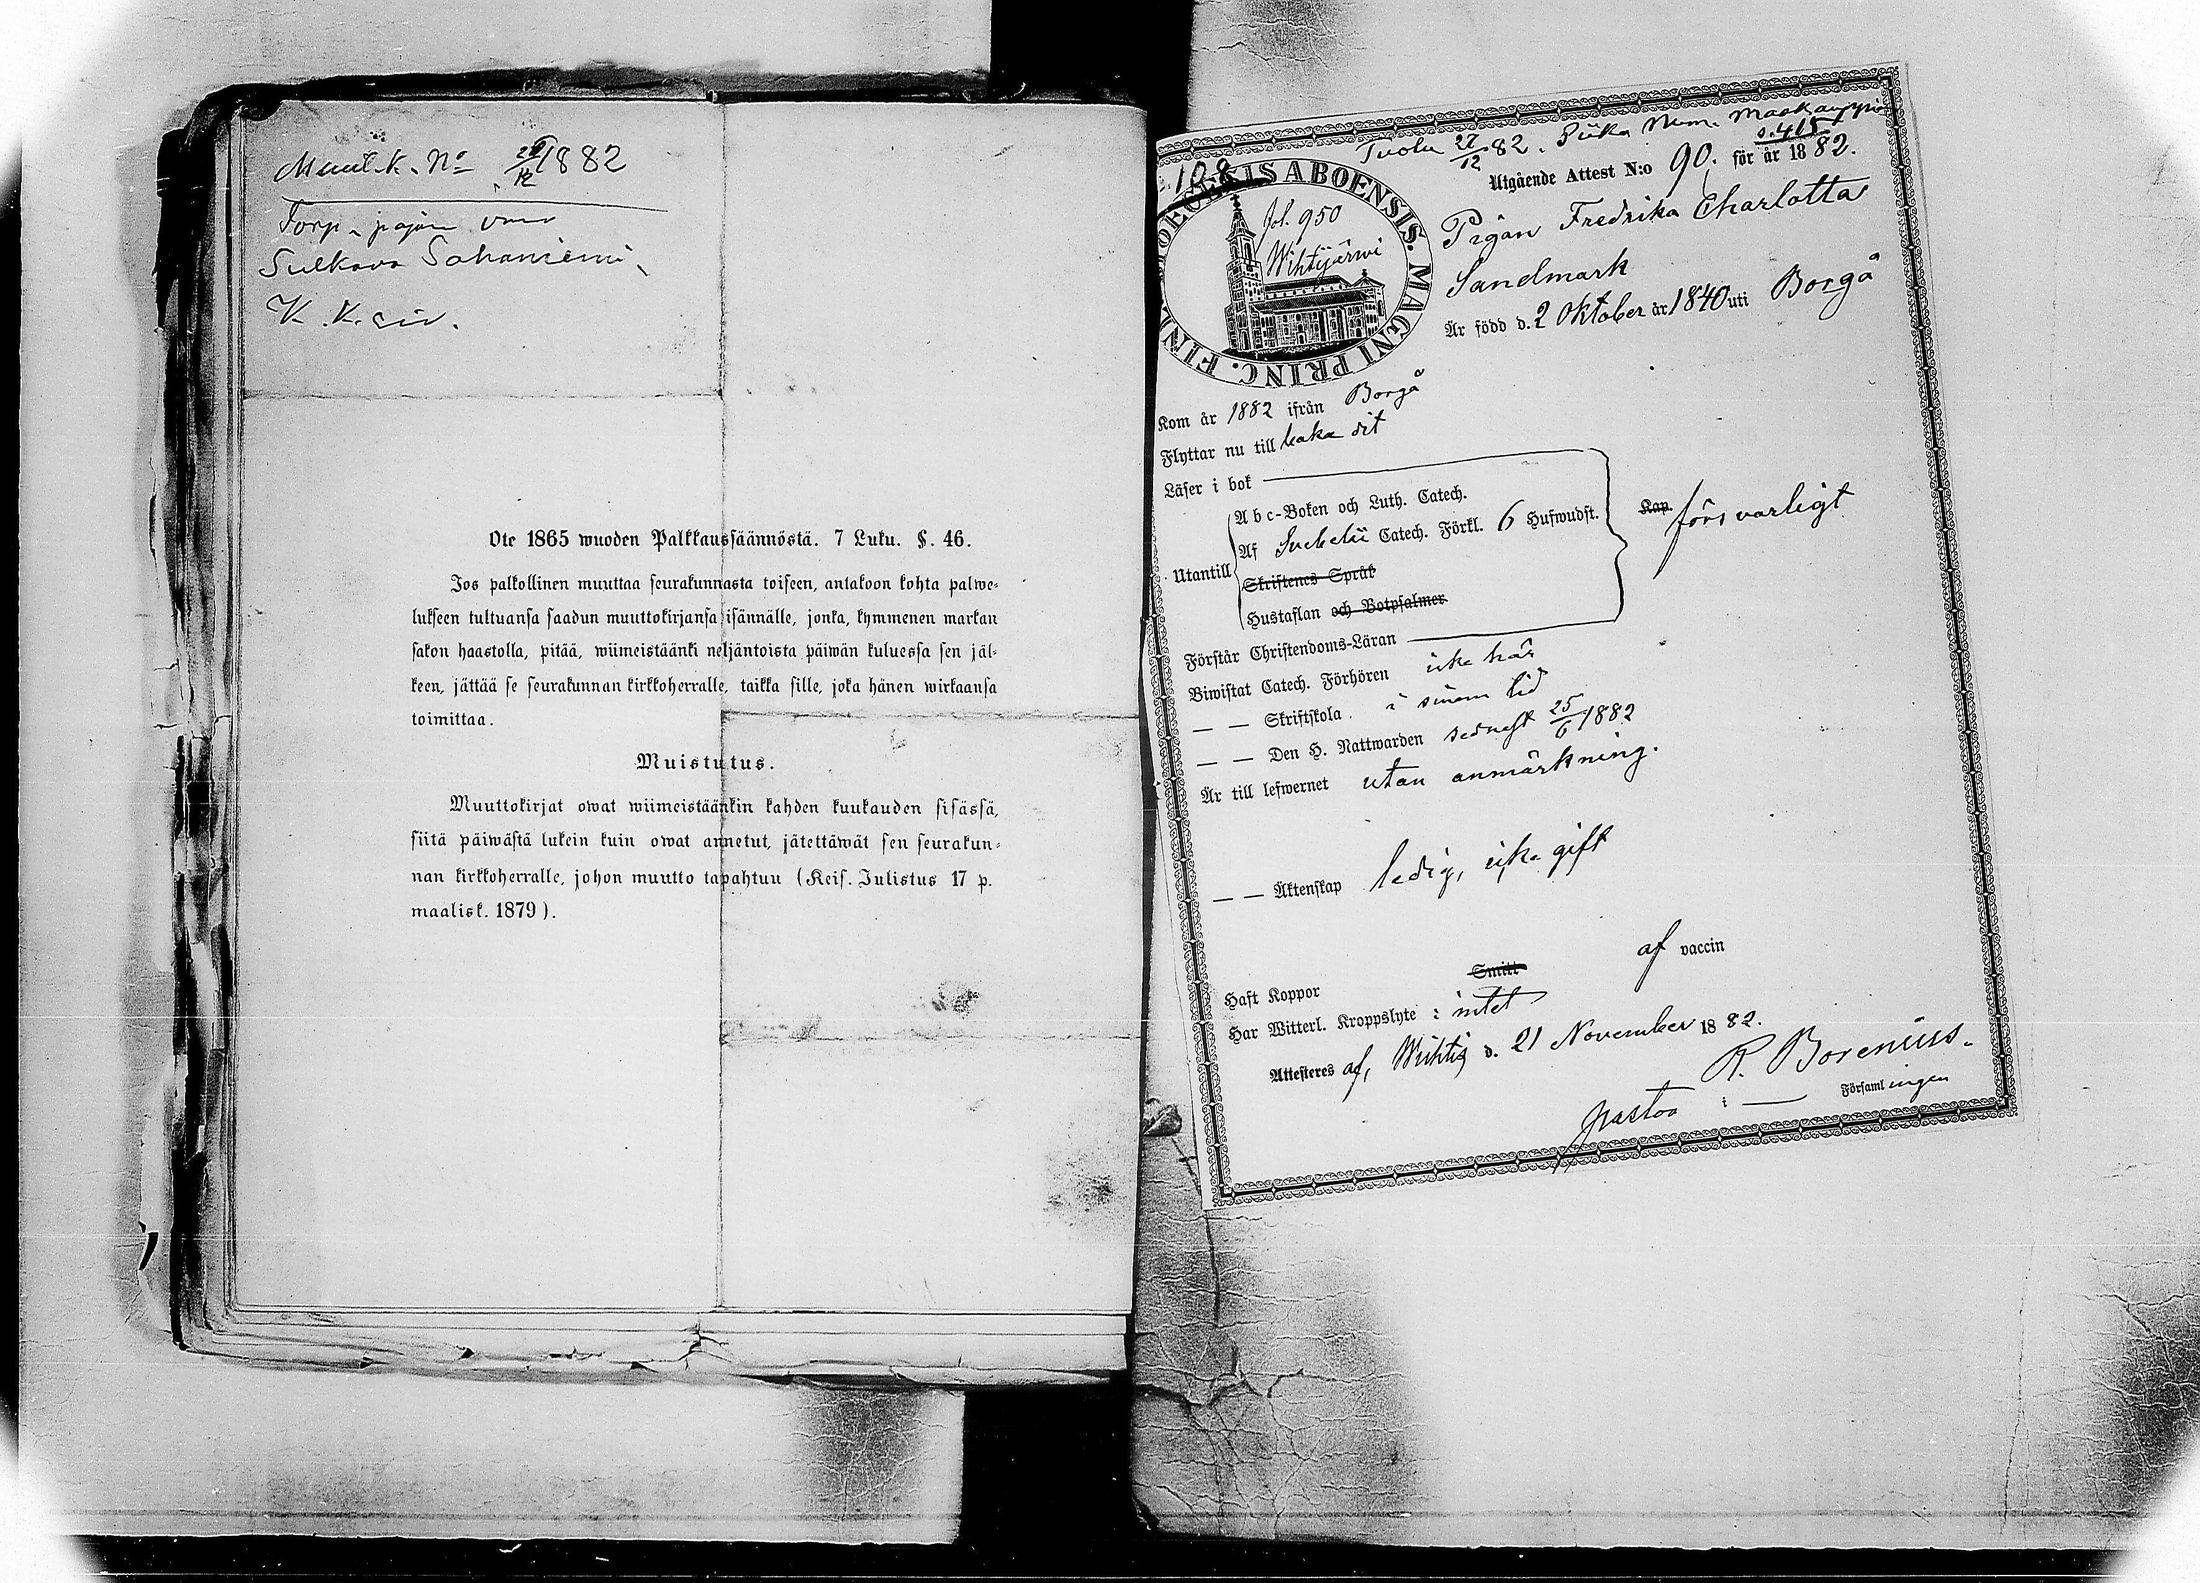 Muutt.k. No 28/12 1882
Torp. pojan
Sulkava Sahaniemi
K. K. siv.
Ote 1865 wuoden Palkkaussäännöstä. 7 Luku. §. 46.
Jos palkollinen muuttaa seurakunnasta toiseen, antakoon kohta palwe-
lukseen tultuansa saadun muuttokirjansa isännälle, jonka, kymmenen markan
sakon haastolla, pitää, wiimeistäänki neljäntoista päiwän kuluessa sen jäl-
keen, jättää se seurakunnan kirkkoherralle, taikka sille, joka hänen wirkaansa
toimittaa.
Muistutus.
Muuttokirjat owat wiimeistäänkin kahden kuukauden sisässä,
siitä päiwästä lukein kuin owat annetut, jätettäwät sen seurakun-
nan kirkkoherralle, johon muutto tapahtuu (Keis. Julistus 17 p.
maalisk. 1879).
Tuotu 27/12 82. Piika Maakauppias
s. 415
108
Utgående Attest N:o 90. för år 1882.
ABOENSIS. MAGNI PRINC. FINL.
fol. 950
Wihtijärwi
Pigan Fredrika Charlotta
Sandmark
Är född d. 2 Oktober år 1840 uti Borgå
Kom år 1882 ifrån Borgå
Flyttar nu till baka dit
Läser i bok
Utantill
A b c-Boken och Luth. Catech.
Af Svebelii Catech. Förkl. 6 Hufwudst.
Skriftenes Språk
Hustaflan och Botpsalmer
Kap. försvarligt
Förstår Christendoms-Läran
Biwistat Catech. Förhören icke här
— — Skriftskola i sinom tid
— — Den H. Nattwarden sednast 25/6 1882
Är till lefwernet utan anmärkning.
— — Äktenskap ledig, icke gift
Haft Koppor Smitt af vaccin
Har Witterl. Kroppslyte : intet
Attesteres af, Wichtis d. 21 November 1882.
R. Borenius.
pastor i — Församlingen